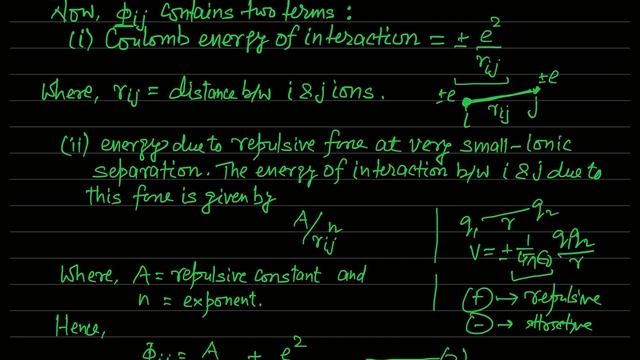 Now, Φij contains two terms:
(i) Coulomb energy of interaction = ± e²/rij
Where, rij = distance b/w i & j ions.
±e ±e
i rij j
(ii) energy due to repulsive force at very small-ionic
separation. The energy of interaction b/w i & j due to
this force is given by
A/rijⁿ
q₁ r q₂
V = ± 1/4πϵ₀ q₁q₂/r
Where, A = repulsive constant and
n = exponent.
(+) → repulsive
(-) → attractive
Hence,
Φij = A ± e²